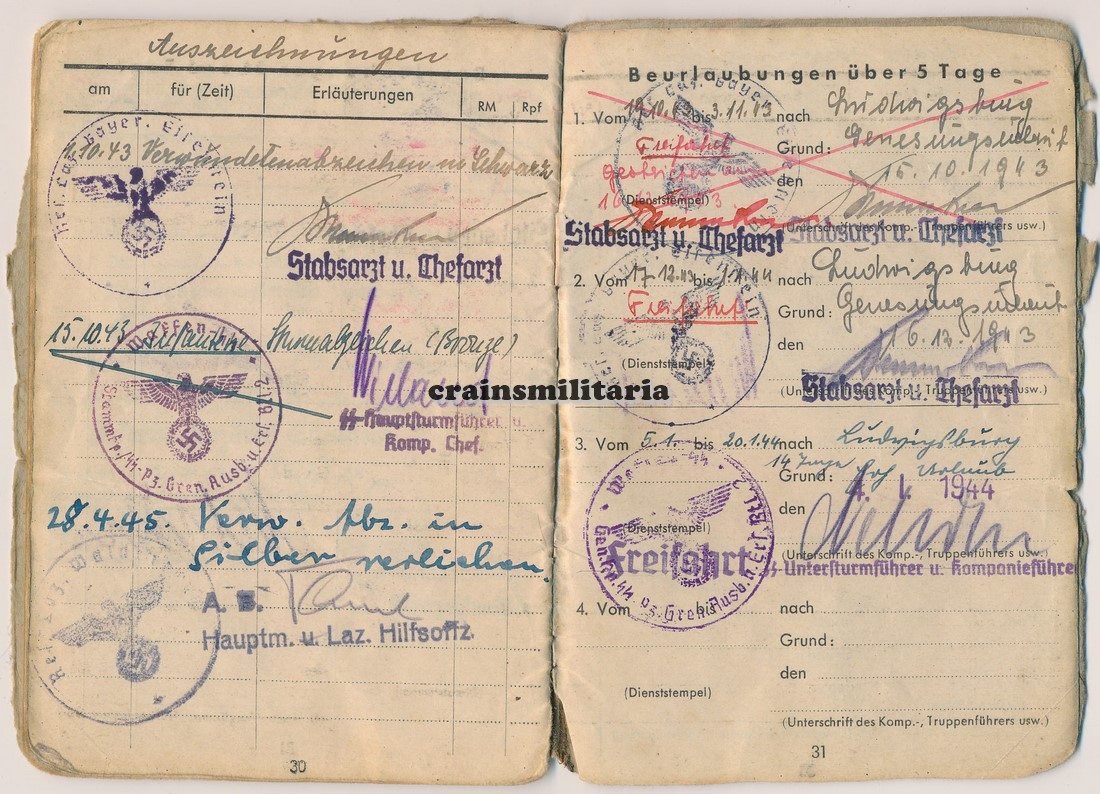 Auszeichnungen
am
für (Zeit)
Erläuterungen
RM
Rpf
1.10.43 Verwundetenabzeichen in Schwarz
Res. Laz. Bayer. Eisenstein
Stabsarzt u. Chefarzt
15.10.43 Infanterie Sturmabzeichen (Bronze)
Waffen-SS
Stammkp./SS-Pz. Gren. Ausb. u. Ers. Btl. 2
SS-Hauptsturmführer u.
Komp. Chef.
28.4.45. Verw. Abz. in
Silber verliehen.
A. B.
Hauptm. u. Laz. Hilfsoffz.
30
crainsmilitaria
Beurlaubungen über 5 Tage
1. Vom 19.10.43 bis 3.11.43 nach Ludwigsburg
Freifahrt
Grund: Genesungsurlaub
gestrichen
den 15.10.1943
(Dienststempel)
(Unterschrift des Komp.-, Truppenführers usw.)
Stabsarzt u. Chefarzt
Stabsarzt u. Chefarzt
2. Vom 17.12.43 bis 1.1.44 nach Ludwigsburg
Freifahrt
Grund: Genesungsurlaub
den 16.12.1943
(Dienststempel)
Stabsarzt u. Chefarzt
3. Vom 5.1. bis 20.1.44 nach Ludwigsburg
14 Tage
Grund: Urlaub
den 4. I. 1944
Waffen-SS
(Dienststempel)
Freifahrt
SS-Pz. Gren. Ausb. u. Ers. Btl. 2
(Unterschrift des Komp.-, Truppenführers usw.)
SS-Untersturmführer u. Kompanieführer
4. Vom bis nach
Grund:
den
(Dienststempel)
(Unterschrift des Komp.-, Truppenführers usw.)
31